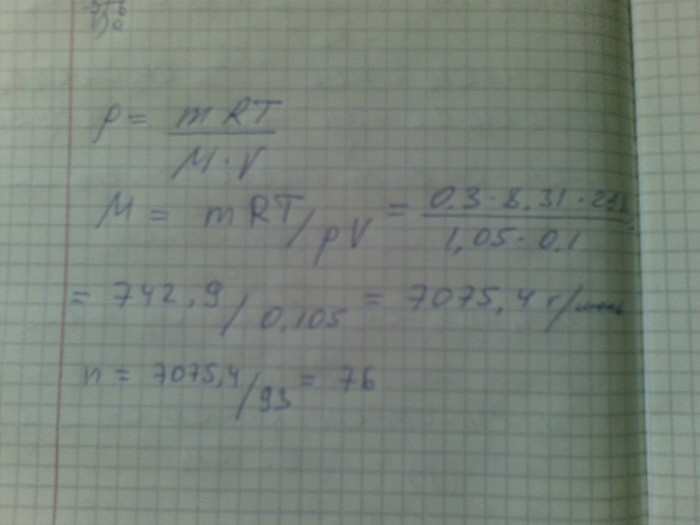 p = mRT / M · V
M = mRT / pV = 0.3 · 8,31 · 298 / 1,05 · 0.1
= 742,9 / 0,105 = 7075,4 г/моль
n = 7075,4 / 93 = 76